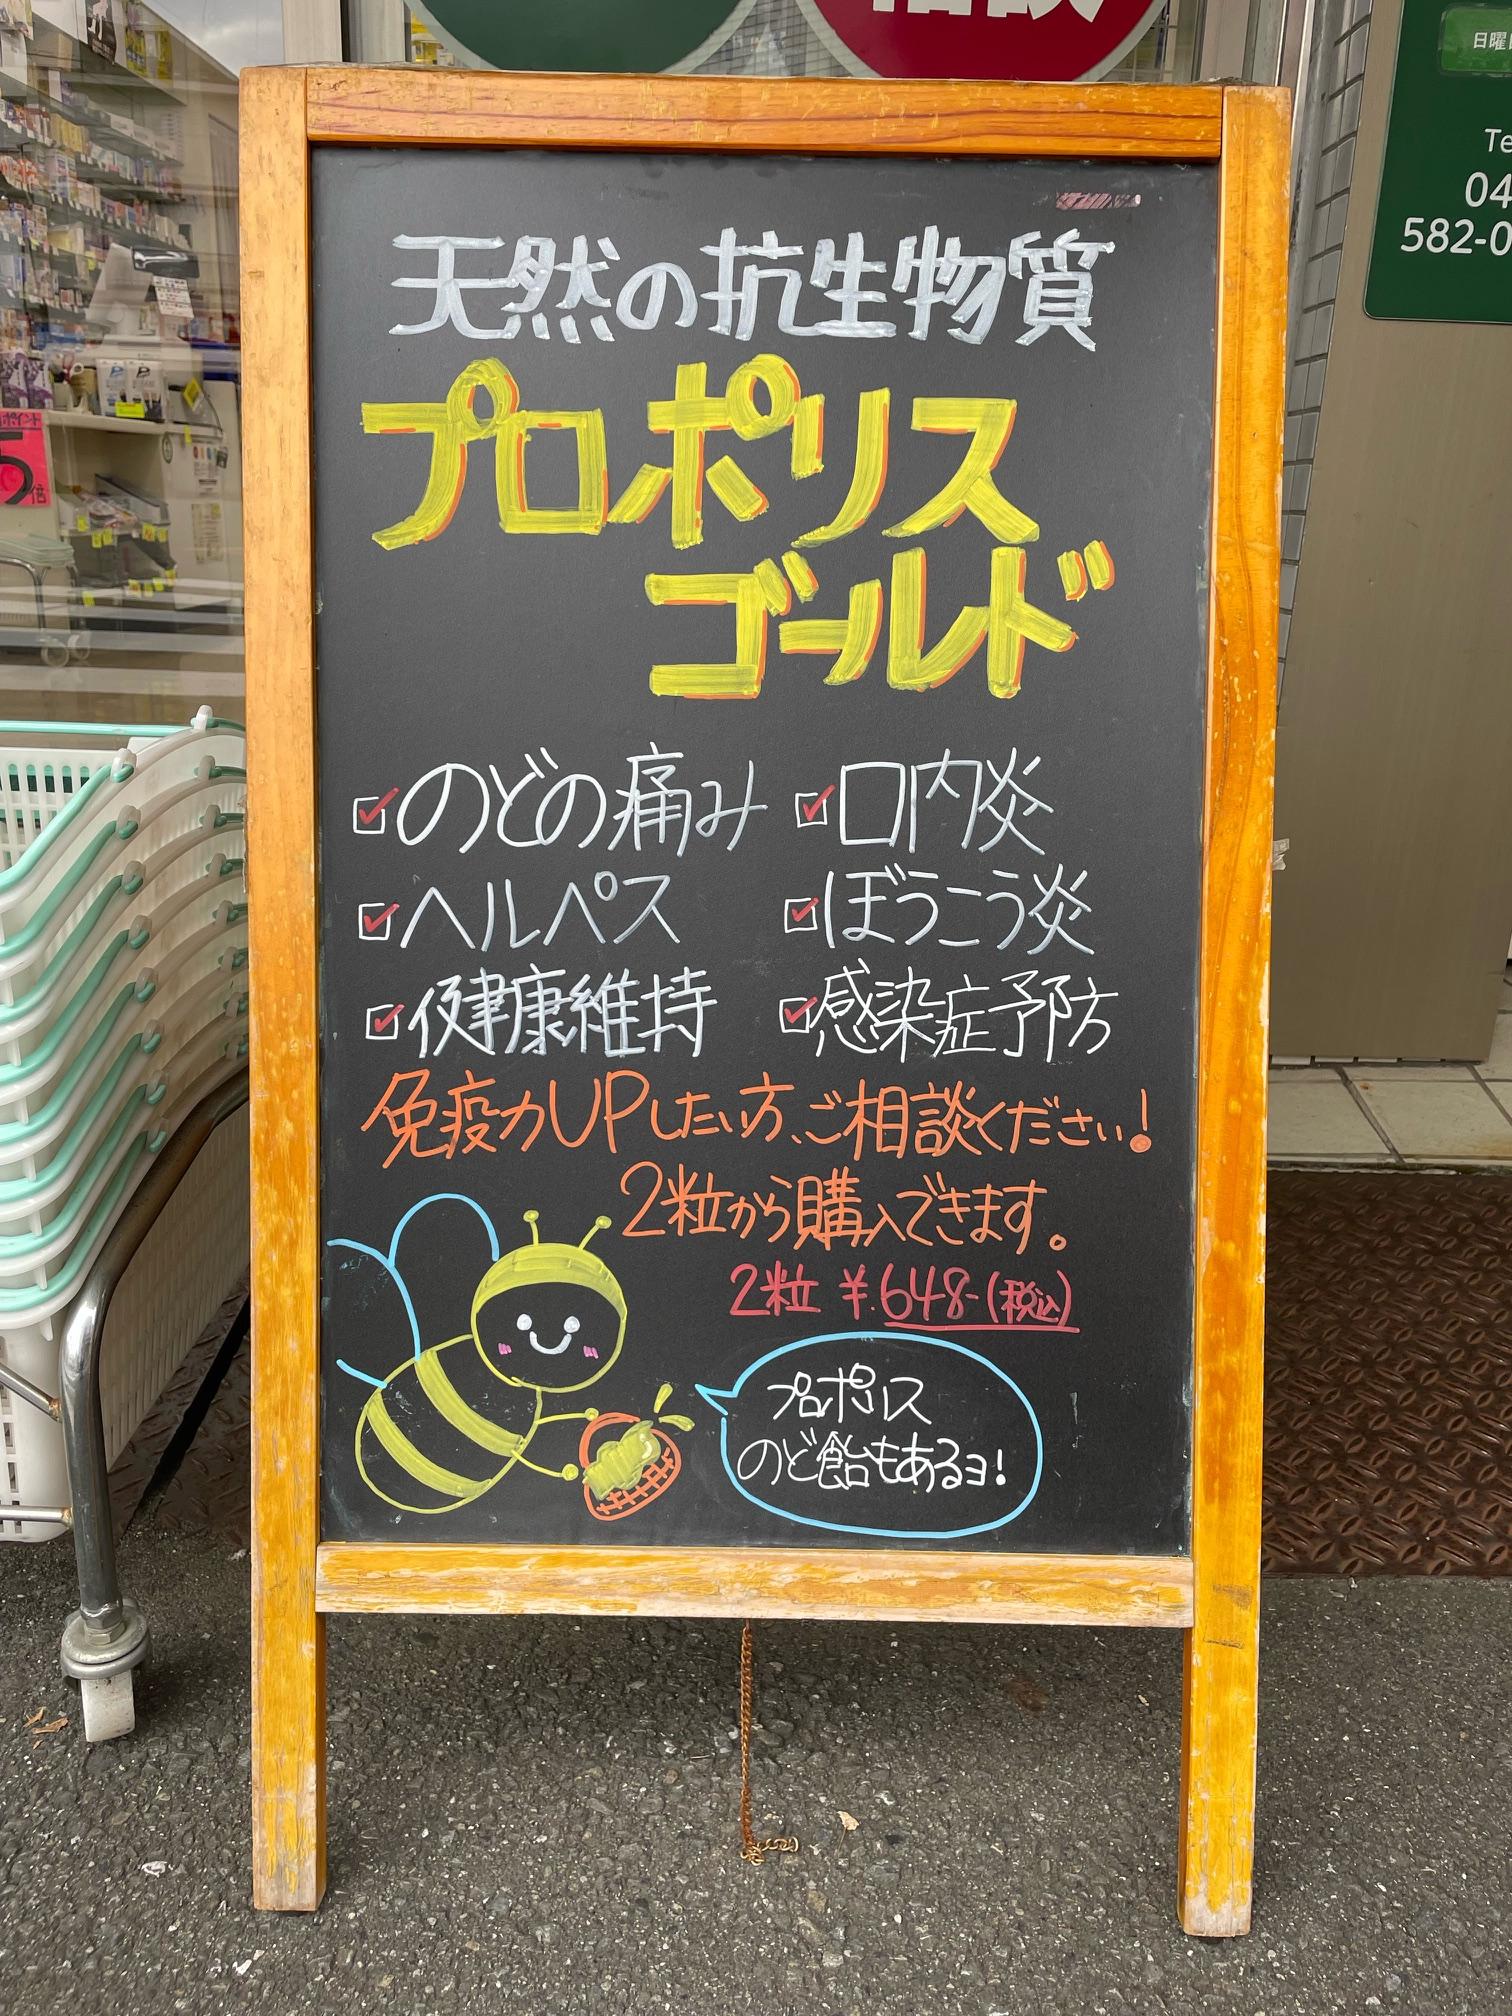 天然の抗生物質
プロポリス
ゴールド
のどの痛み 口内炎
ヘルペス ぼうこう炎
健康維持 感染症予防
免疫力UPしたい方、ご相談ください!
2粒から購入できます。
2粒 ¥648-(税込)
プロポリス
のど飴もあるヨ!
ポイント
5倍
日曜
04
582-0